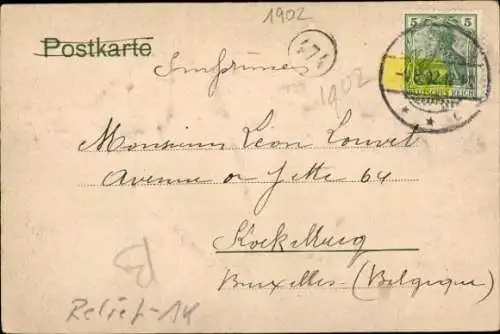 1902
Postkarte
5 5
474
Imprimés
1902
02
DEUTSCHES REICH
Monsieur Léon Louvet
Avenue de Jette 64
Koekelberg
Bruxelles - (Belgique)
Relief-14